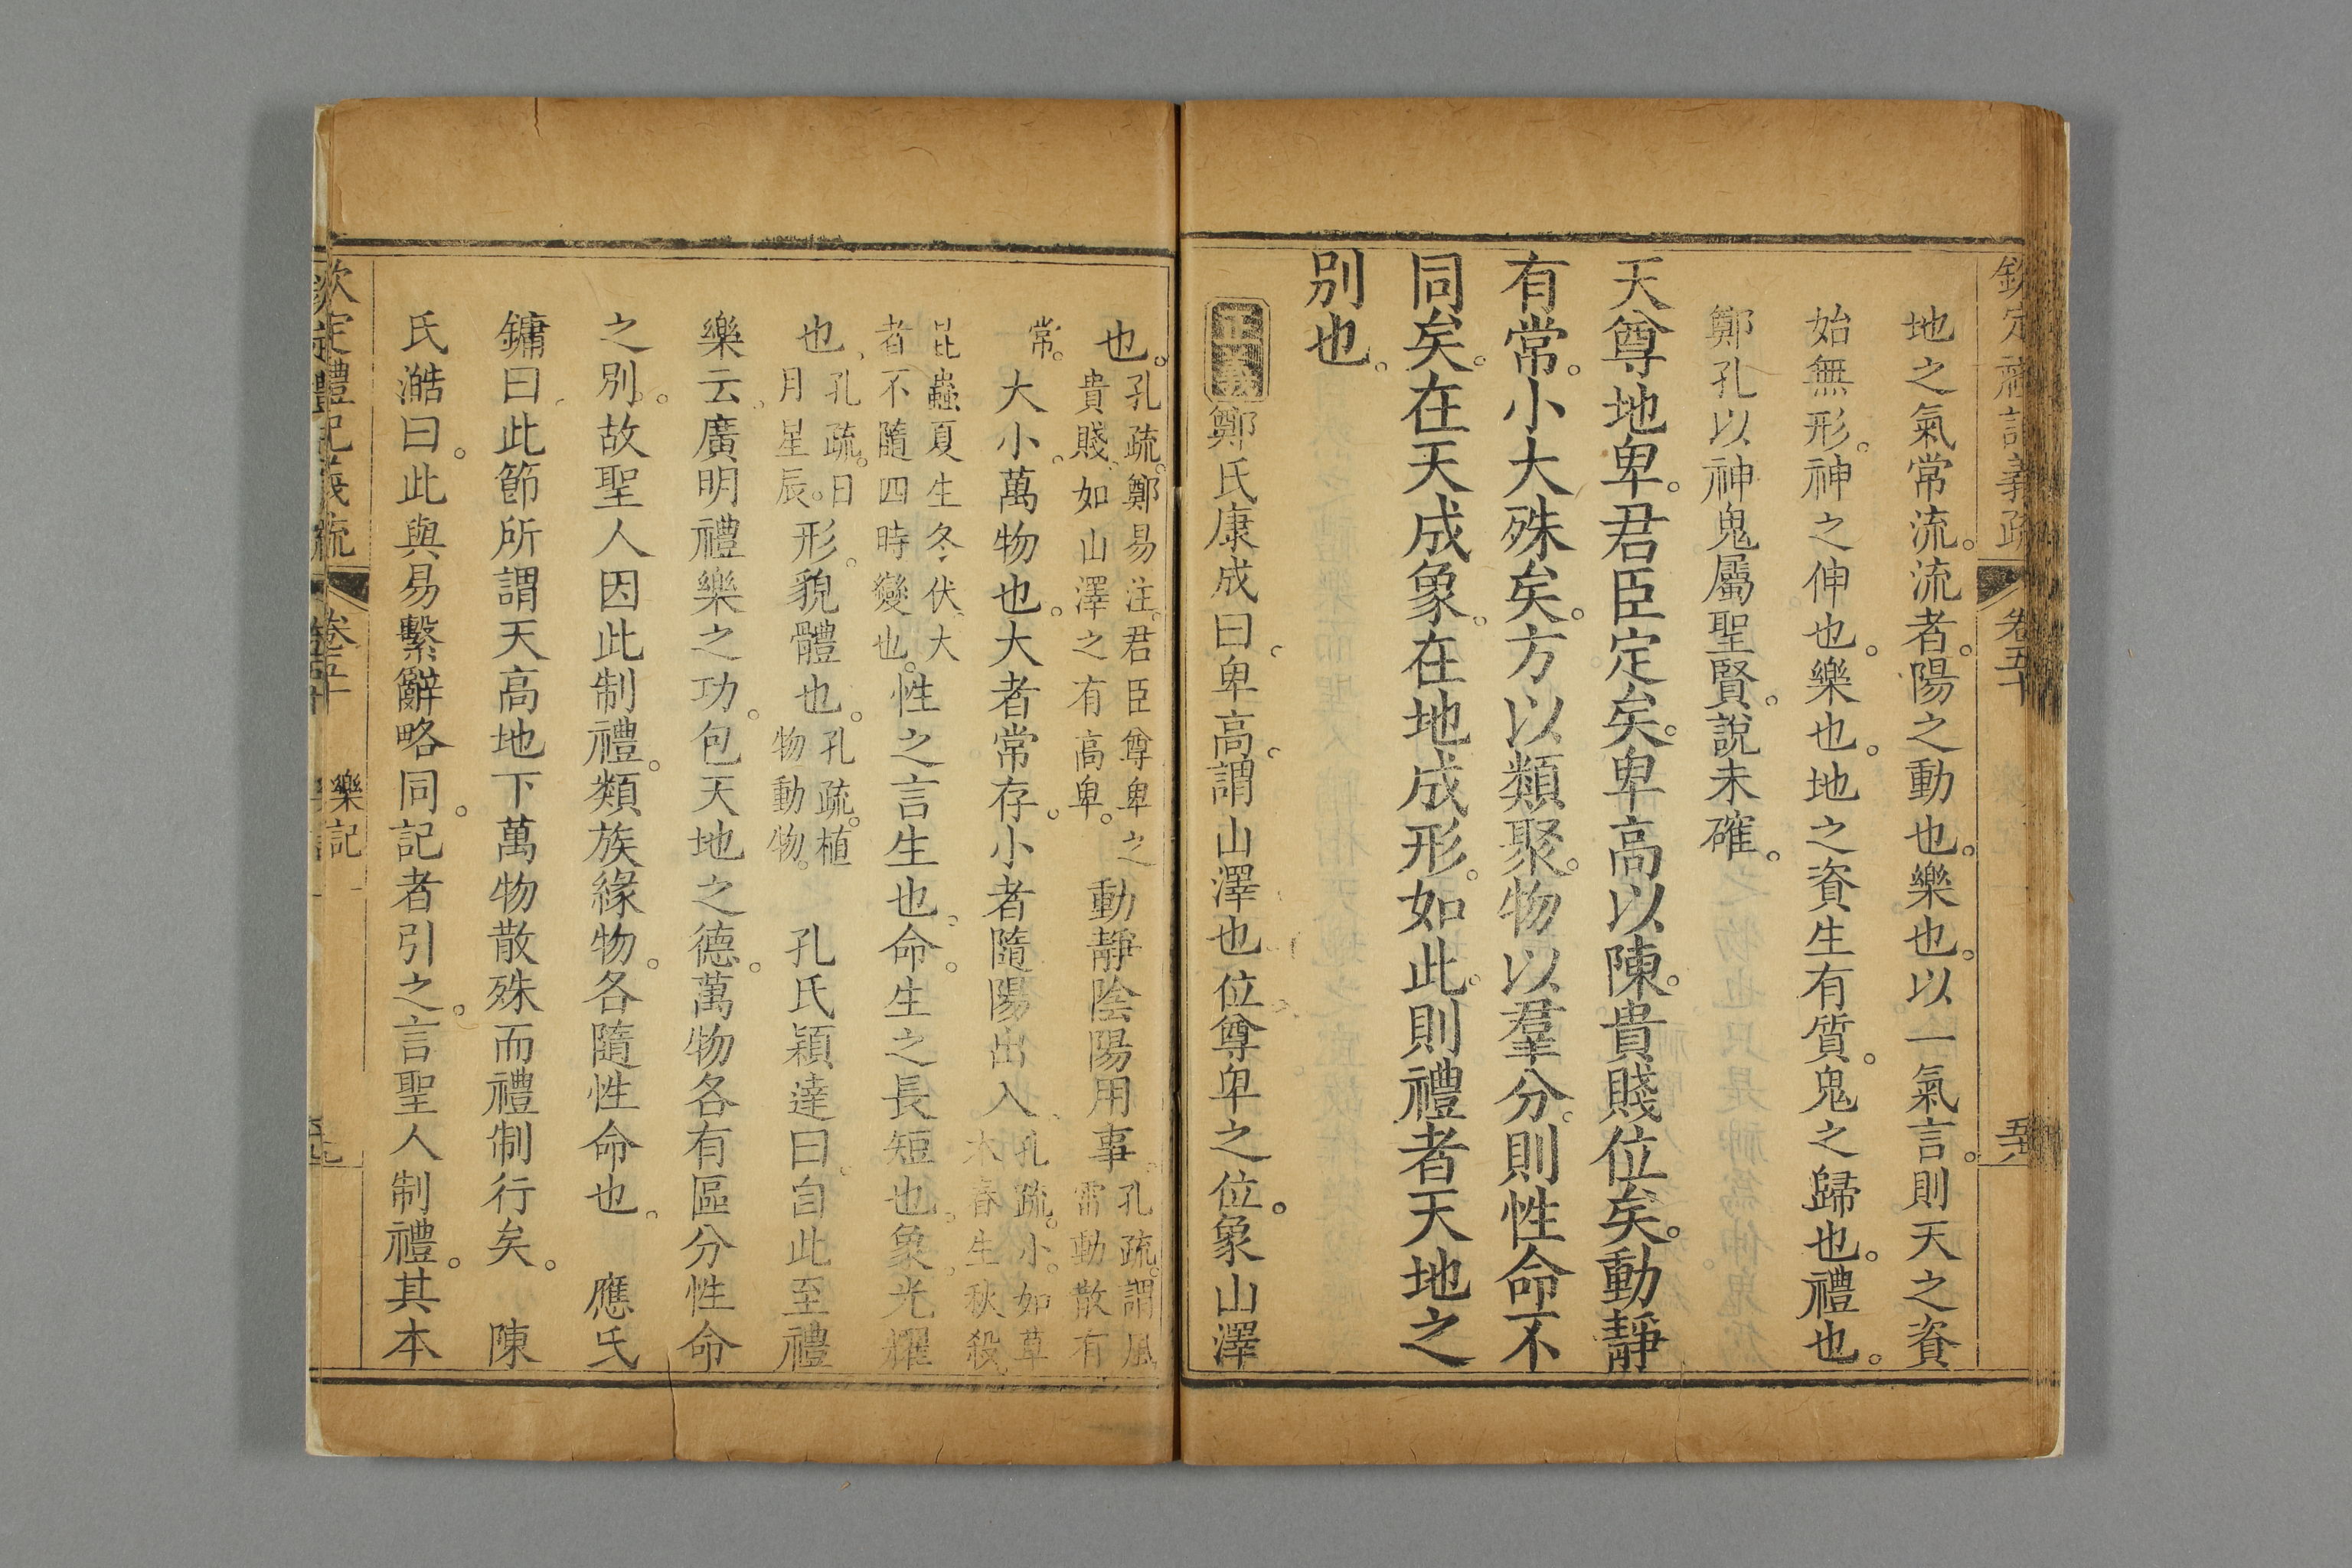 欽定禮記義疏 卷五十
地之氣常流。流者。陽之動也。樂也。以一氣言。則天之資
始無形。神之伸也。樂也。地之資生有質。鬼之歸也。禮也。
鄭孔以神鬼屬聖賢。說未確。
天尊地卑。君臣定矣。卑高以陳。貴賤位矣。動靜
有常。小大殊矣。方以類聚。物以羣分。則性命不
同矣。在天成象。在地成形。如此。則禮者天地之
別也。
正義 鄭氏康成曰、卑高、謂山澤也、位、尊卑之位。象山澤
也。孔疏。鄭易注。君臣尊卑之
貴賤、如山澤之有高卑。動靜陰陽用事、孔疏。謂風
雷動散有
常。大小、萬物也。大者常存。小者隨陽出入、孔疏。小。如草
木春生秋殺、
昆蟲夏生冬伏、大
者不隨四時變也。性之言生也、命、生之長短也、象、光耀
也、孔疏。日
月星辰。形、貌體也。孔疏。植
物動物。 孔氏穎達曰、自此至禮
樂云、廣明禮樂之功、包天地之德。萬物各有區分性命
之別。故聖人因此制禮。類族緣物。各隨性命也。 應氏
鏞曰、此節所謂天高地下萬物散殊而禮制行矣。 陳
氏澔曰。此與易繫辭略同。記者引之。言聖人制禮。其本
欽定禮記義疏 卷五十 樂記